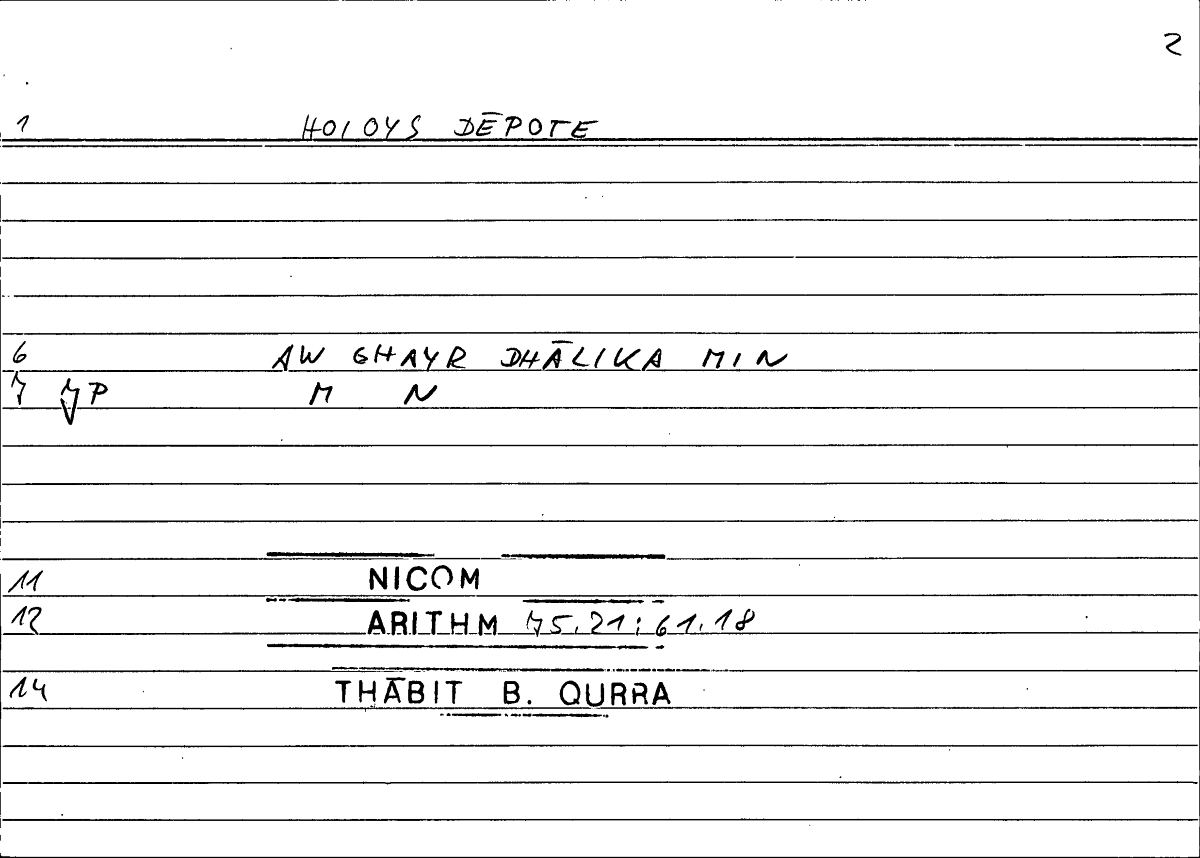 2
1 HOIOYS DĒPOTE
6 AW GHAYR DHĀLIKA MIN
7 7P M N
11 NICOM
12 ARITHM 75.21:61.18
14 THĀBIT B. QURRA